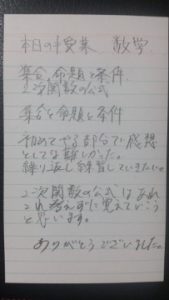 本日の授業 数学
集合、命題と条件
2次関数の公式
集合と命題と条件
初めてやる部分で感想
としては難しかった。
繰り返し練習していきたい。
2次関数の公式はあれ
これ考えずに覚えていこう
と思います。
ありがとうございました。